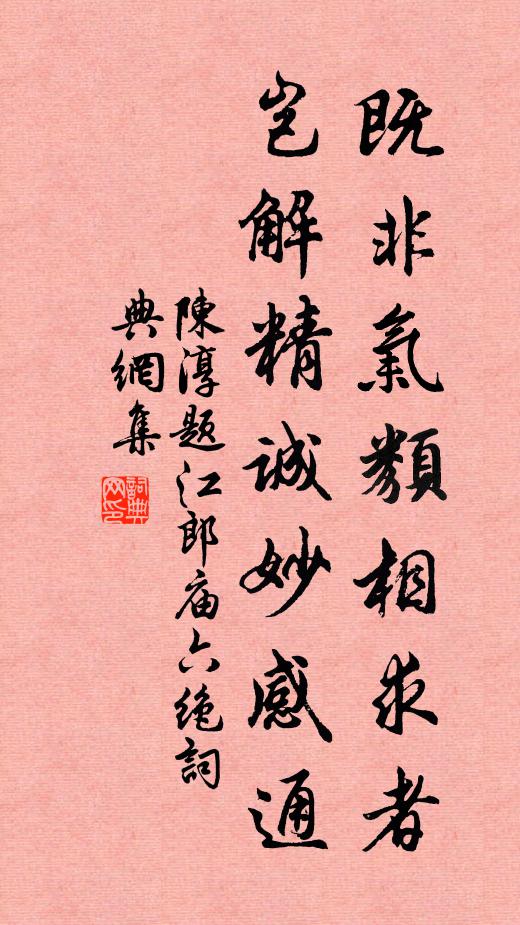 既非氣類相求者
豈解精誠妙感通
陳淳題江郎庙六绝詞
典網集
詞典
网印